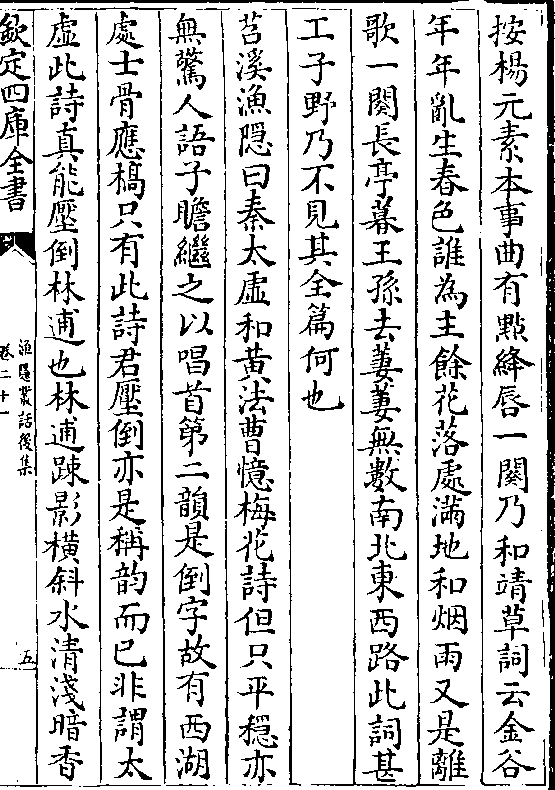 按楊元素本事曲有㸃絳唇一闋乃和靖草詞云金谷
年年亂生春色誰為主餘花落處滿地和烟雨又是離
歌一闋長亭暮王孫去萋萋無數南北東西路此詞甚
工子野乃不見其全篇何也
苕溪漁隠曰秦太虛和黄法曹憶梅花詩但只平穩亦
無驚人語子瞻繼之以唱首第二韻是倒字故有西湖
處士骨應槁只有此詩君壓倒亦是稱韵而已非謂太
虛此詩真能壓倒林逋也林逋踈影横斜水清淺暗香
欽定四庫全書
漁隠叢話後集
卷二十一
五